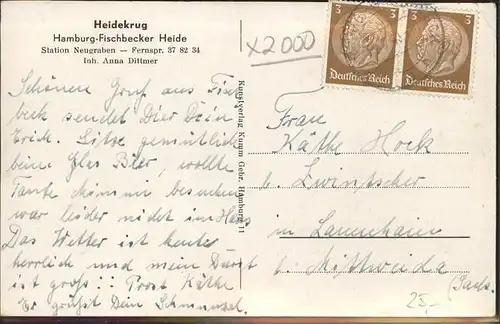 Heidekrug
Hamburg-Fischbecker Heide
Station Neugraben — Fernspr. 37 82 34
Inh. Anna Dittmer
x2000
3 3
Deutsches Reich
3 3
Deutsches Reich
Schönen Gruß aus Fisch
beck sendet Dir Dein
Erich. Sitze gemütlich
beim Glas Bier, wollte
Tante besuchen
war leider nicht im Haus
Das Wetter ist heute
herrlich und mein Durst
ist groß!! Prost Käthe
Es grüßt Dein
Kunstverlag Kuqum Gebr. Hamburg 11
Frau
Käthe Hock
b. Zwintscher
in Lauenhain
b. Mittweida
(Sachs.
25,-